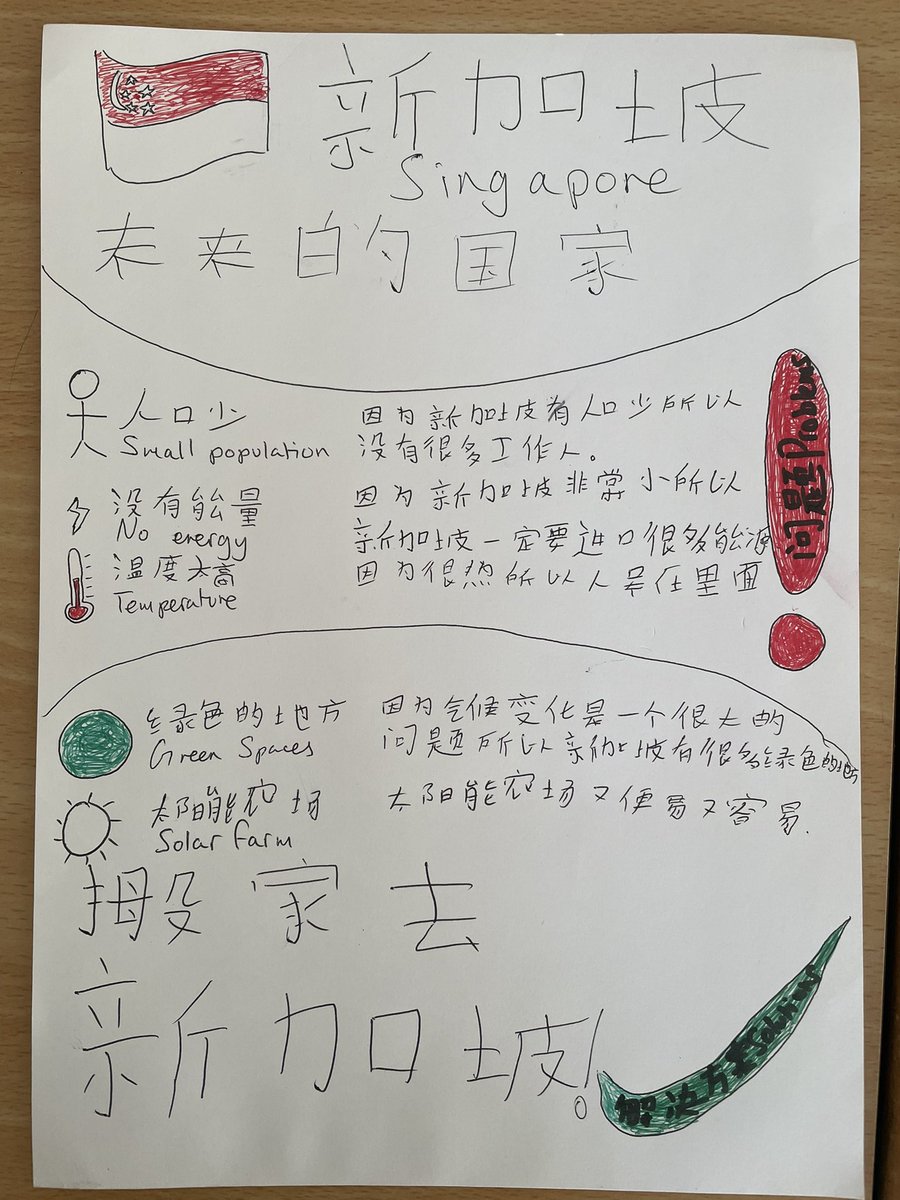 新加坡
Singapore
未来的国家
人口少
Small population
因为新加坡有人口少所以
没有很多工作人。
没有能量
No energy
因为新加坡非常小所以
新加坡一定要进口很多能源
温度太高
Temperature
因为很热所以人呆在里面
问题Problems
绿色的地方
Green Spaces
因为气候变化是一个很大的
问题所以新加坡有很多绿色的地方
太阳能农场
Solar farm
太阳能农场又便易又容易.
搬家去
新加坡!
解决方案Solutions